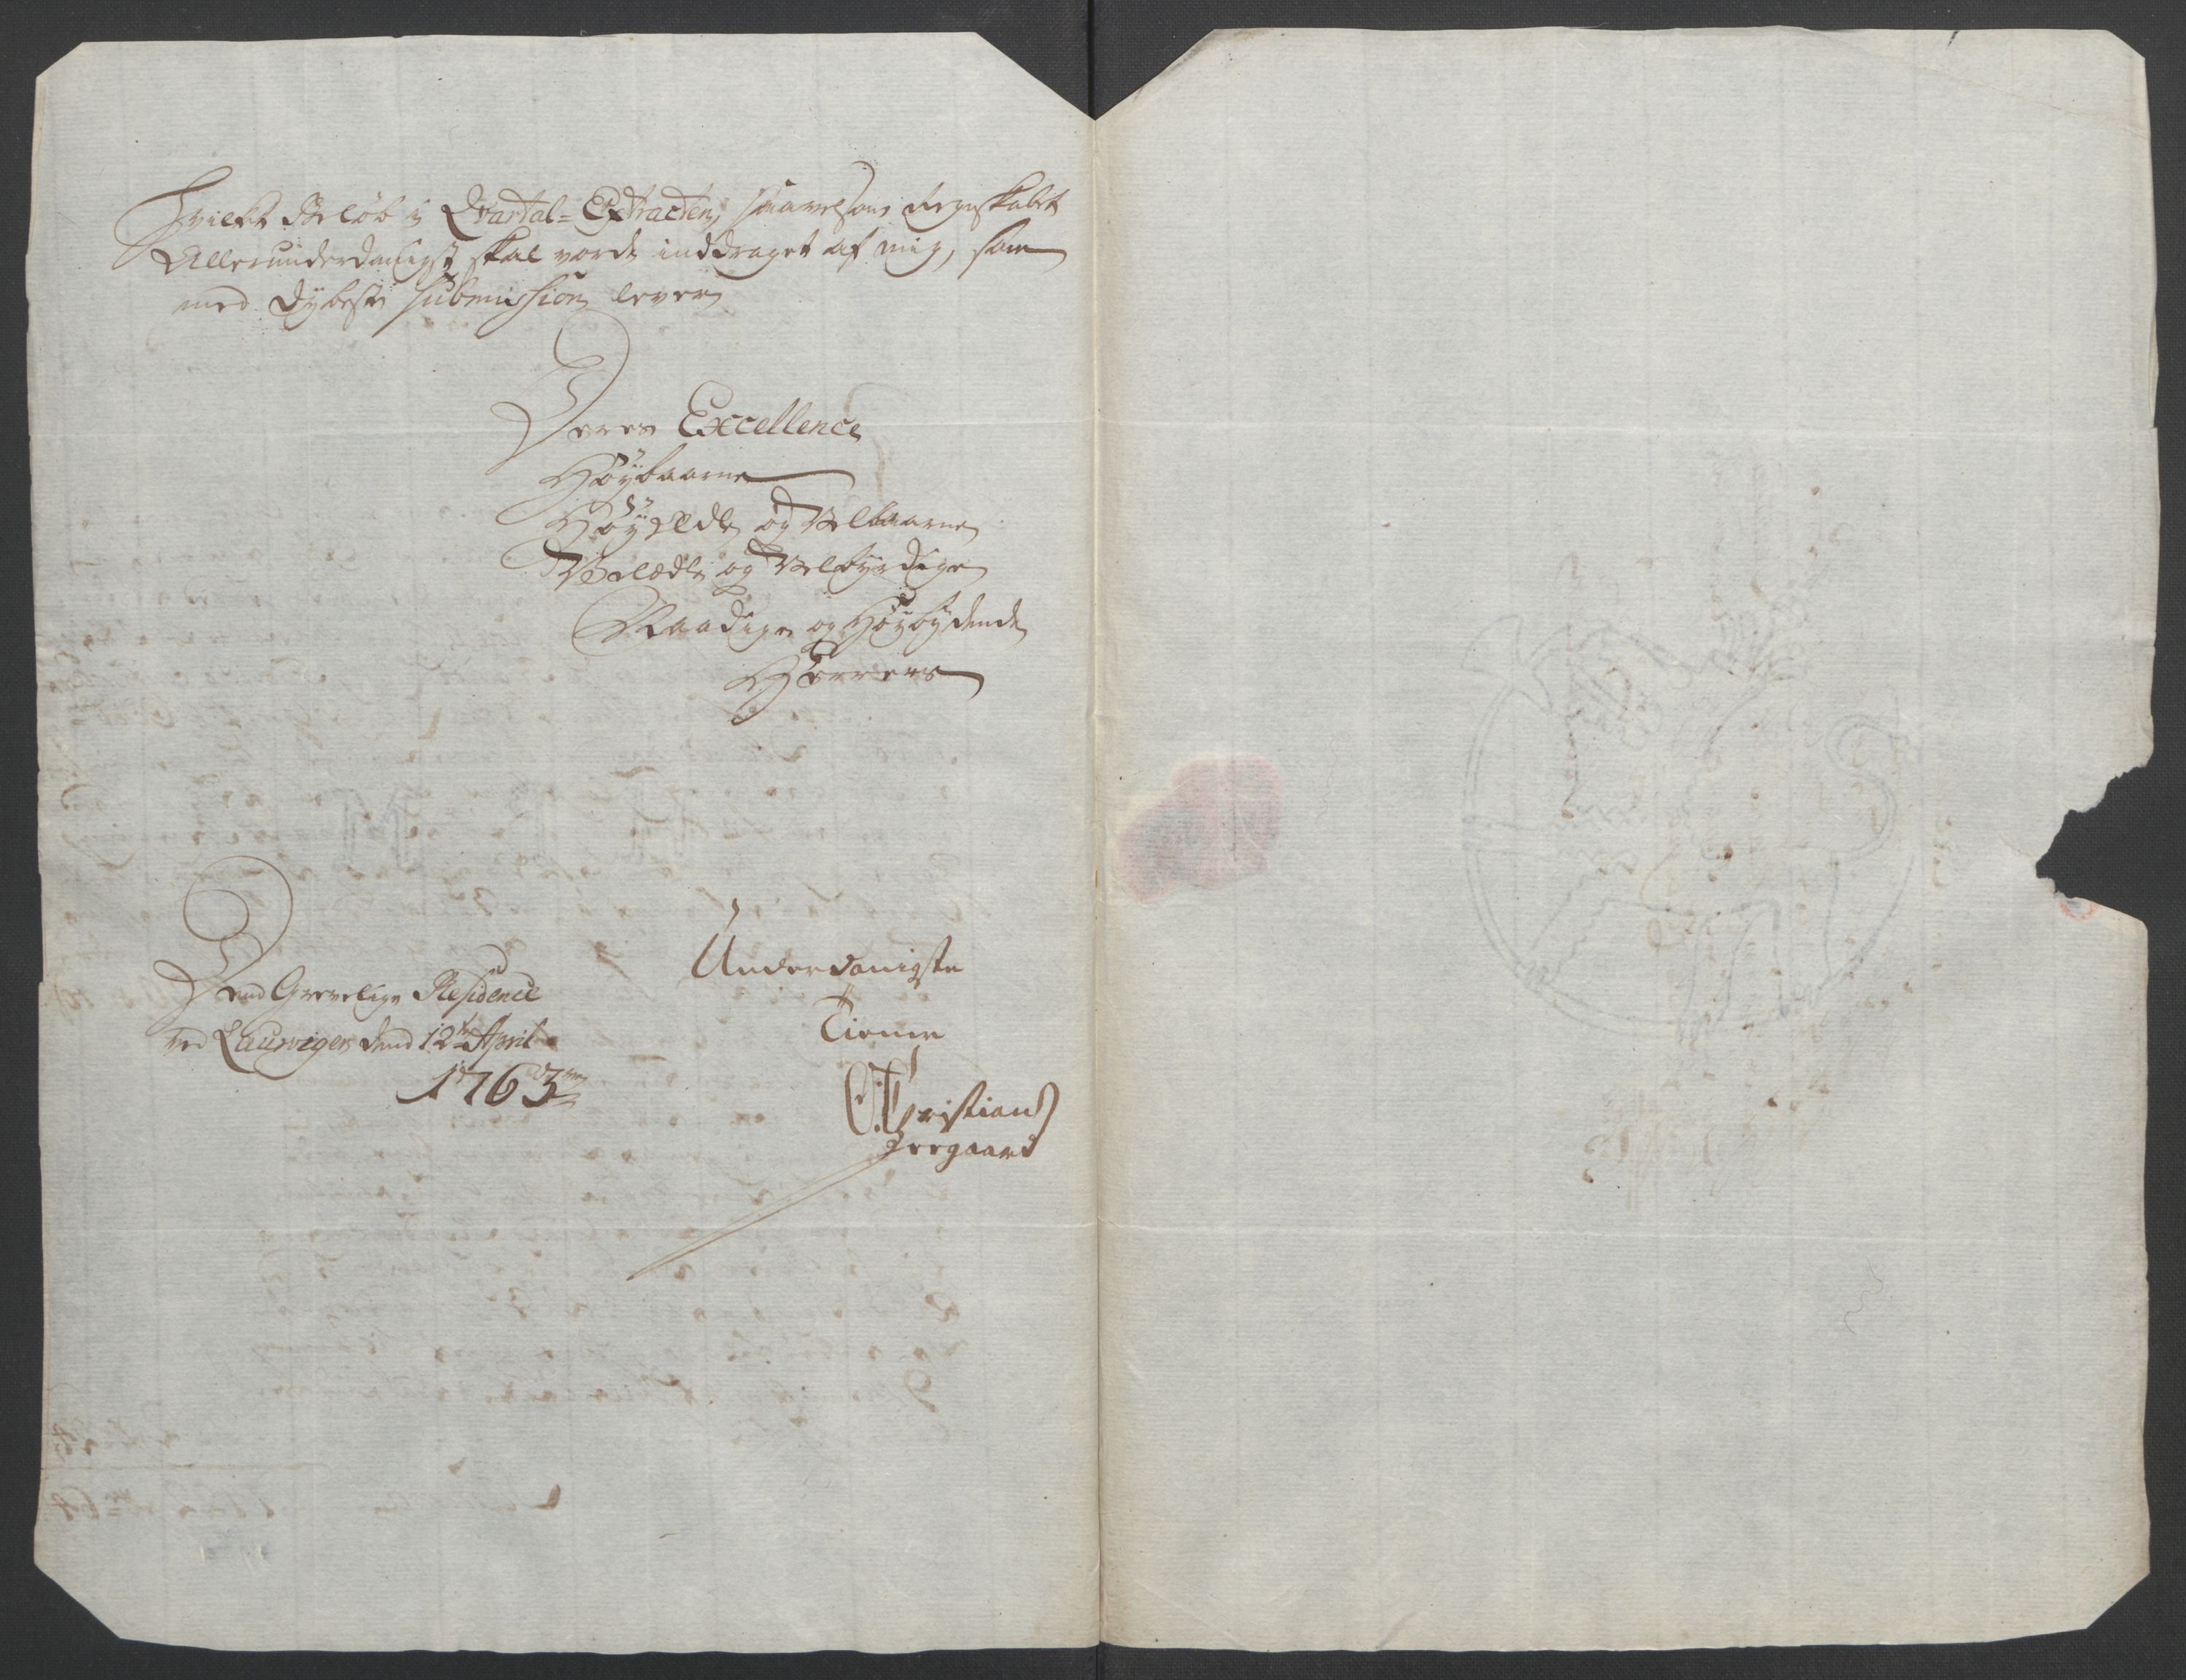 Hvilket Beløb i Qvartal=Extracten, saavelsom Regnskabet
Allerunderdanigst skal vorde inddraget af mig, som
med dybeste Submission lever
Deres Excellence
Høybaarne
Høyædle og Velbaarne
Velædle og Velbyrdige
Naadige og Høybydende
Herrers
Underdanigste
Tiener
Christian
Jeegaard
Dend Grevelige Residence
ved Laurvigen dend 12te April
1763